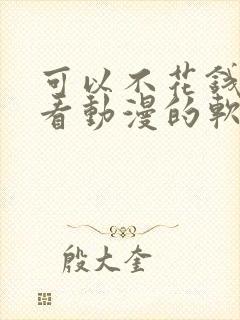 可以不花錢
看動漫的軟
殷大奎